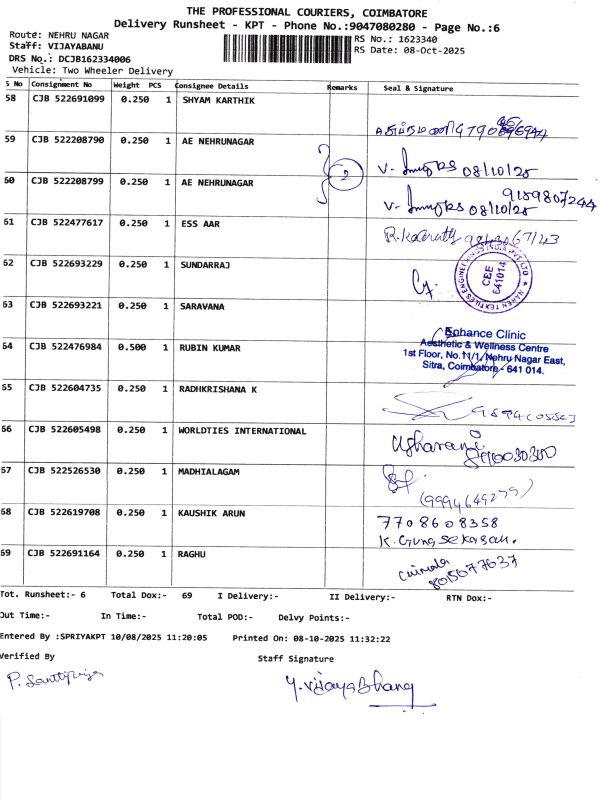 THE PROFESSIONAL COURIERS, COIMBATORE
Delivery Runsheet - KPT - Phone No.:9047080280 - Page No.:6
Route: NEHRU NAGAR
RS No.: 1623340
Staff: VIJAYABANU
RS Date: 08-Oct-2025
DRS No.: DCJB162334006
Vehicle: Two Wheeler Delivery
S No Consignment No Weight PCS Consignee Details Remarks Seal & Signature
58 CJB 522691099 0.250 1 SHYAM KARTHIK
59 CJB 522208790 0.250 1 AE NEHRUNAGAR V- 08/10/25
2
60 CJB 522208799 0.250 1 AE NEHRUNAGAR 9159807244
V- 08/10/25
61 CJB 522477617 0.250 1 ESS AAR
62 CJB 522693229 0.250 1 SUNDARRAJ
CEE
641014
63 CJB 522693221 0.250 1 SARAVANA
64 CJB 522476984 0.500 1 RUBIN KUMAR
Enhance Clinic
Aesthetic & Wellness Centre
1st Floor, No.11/1, Nehru Nagar East,
Sitra, Coimbatore - 641 014.
65 CJB 522604735 0.250 1 RADHKRISHANA K
66 CJB 522605498 0.250 1 WORLDTIES INTERNATIONAL
67 CJB 522526530 0.250 1 MADHIALAGAM
(9994649279)
68 CJB 522619708 0.250 1 KAUSHIK ARUN 7708608358
K. Gunasekaran.
69 CJB 522691164 0.250 1 RAGHU
8015077637
Tot. Runsheet:- 6 Total Dox:- 69 I Delivery:- II Delivery:- RTN Dox:-
Out Time:- In Time:- Total POD:- Delvy Points:-
Entered By :SPRIYAKPT 10/08/2025 11:20:05 Printed On: 08-10-2025 11:32:22
Verified By Staff Signature